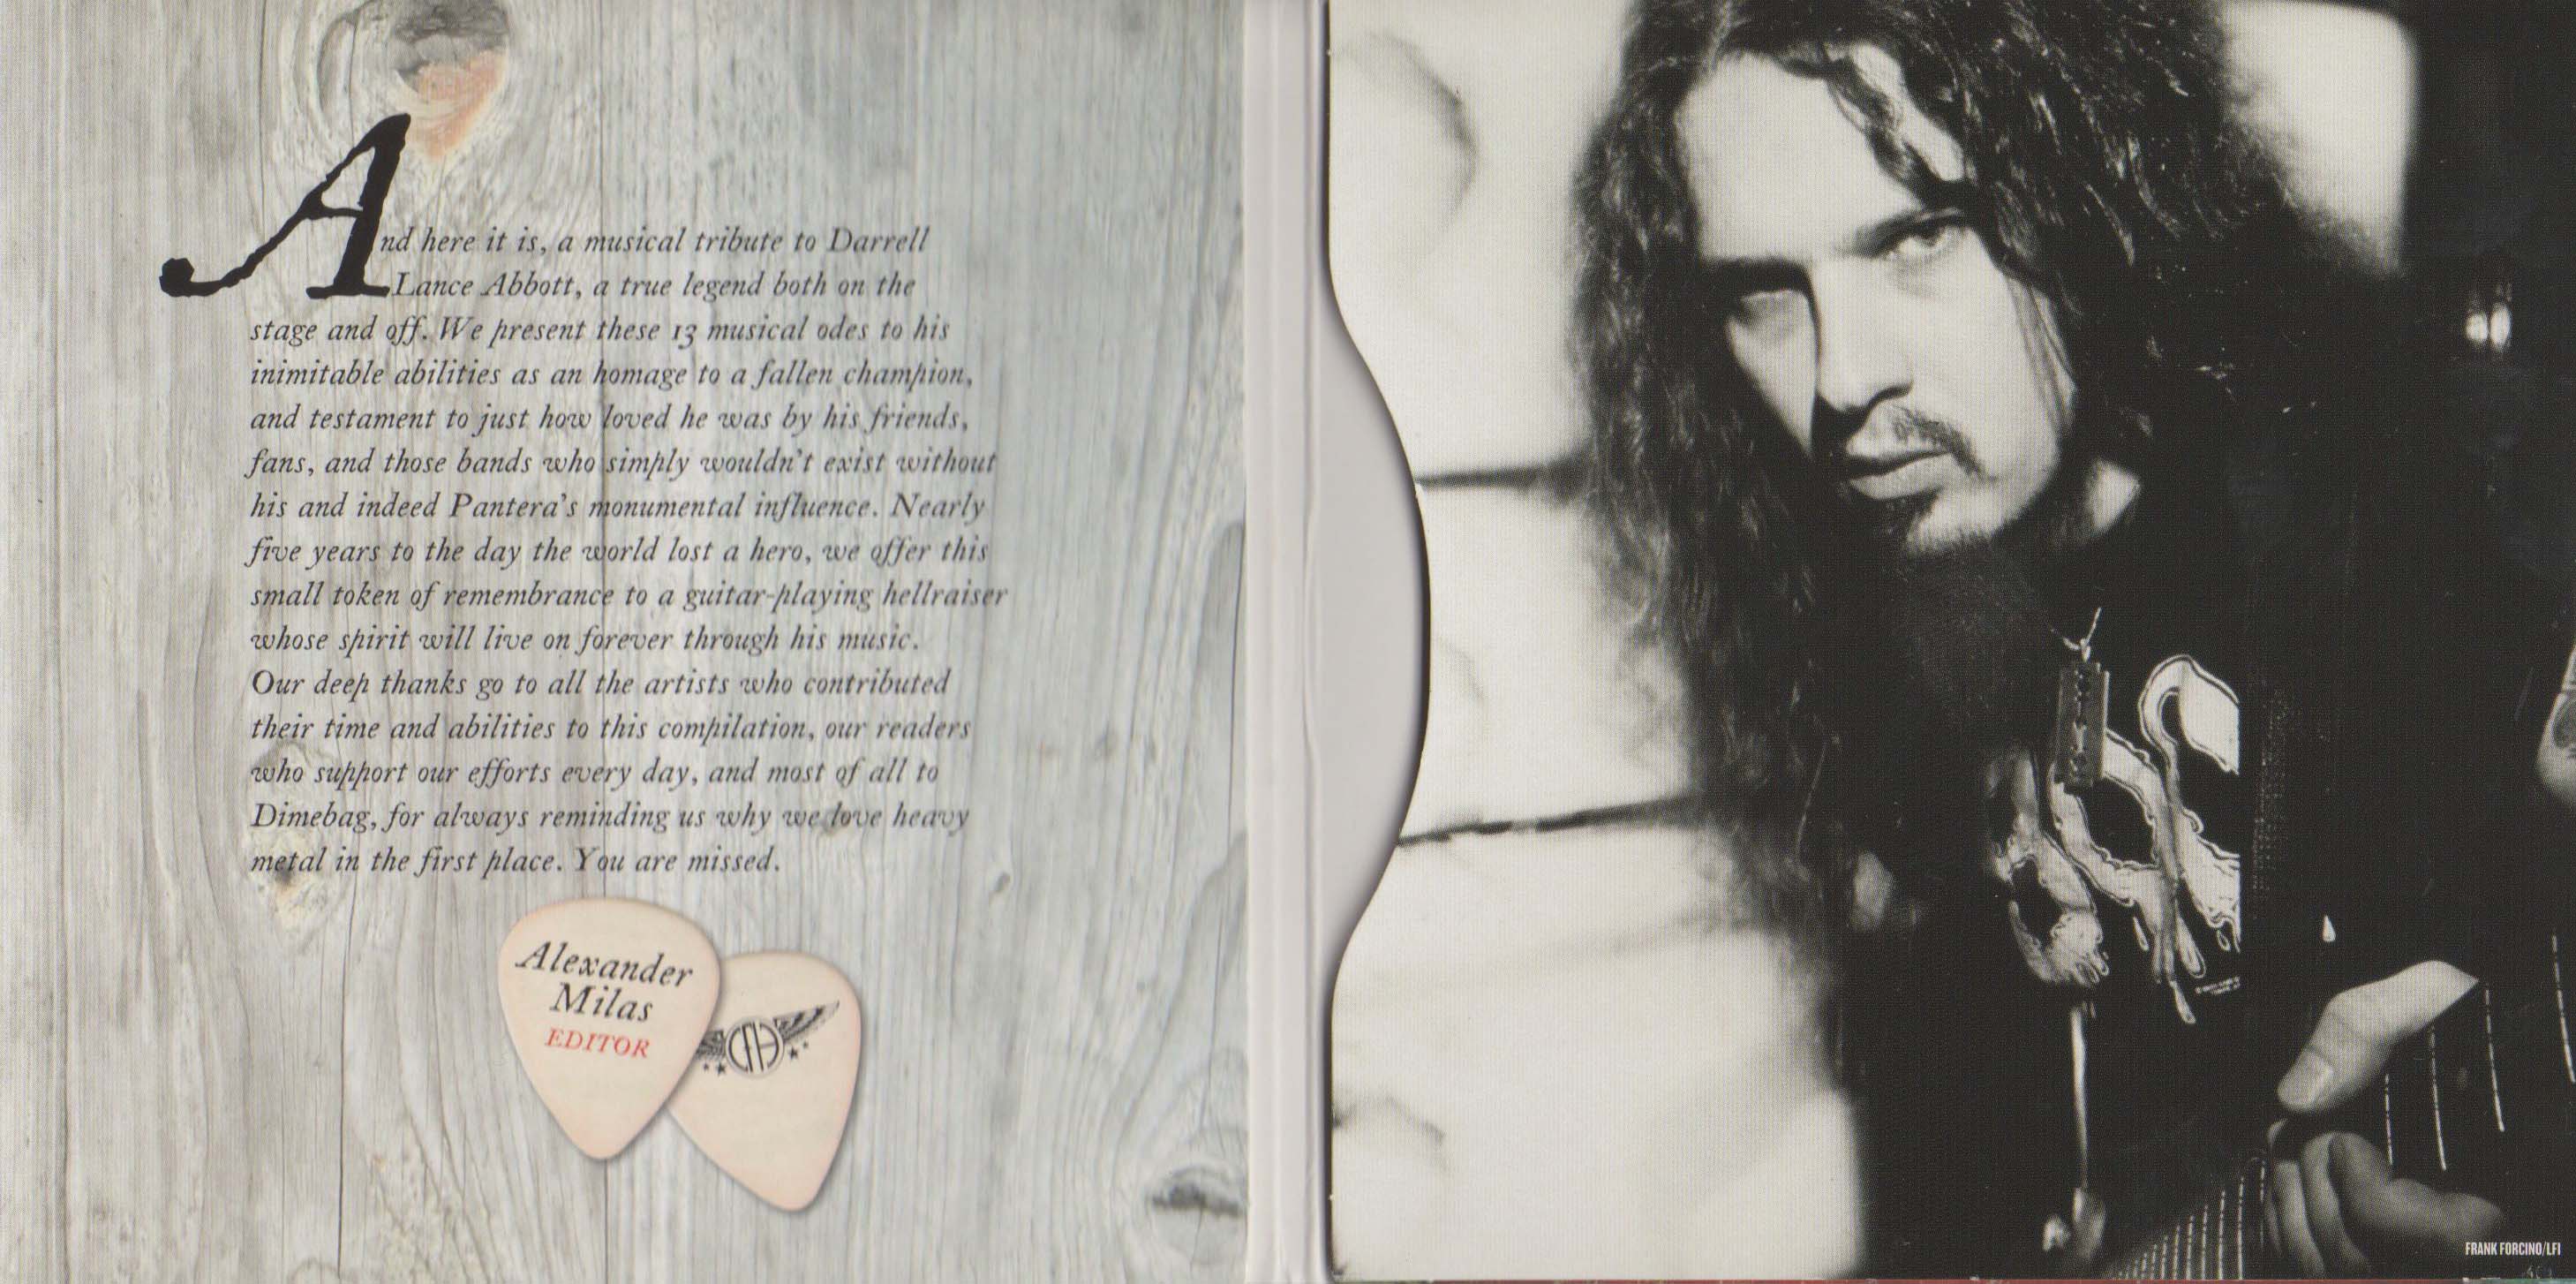 And here it is, a musical tribute to Darrell
Lance Abbott, a true legend both on the
stage and off. We present these 13 musical odes to his
inimitable abilities as an homage to a fallen champion,
and testament to just how loved he was by his friends,
fans, and those bands who simply wouldn't exist without
his and indeed Pantera's monumental influence. Nearly
five years to the day the world lost a hero, we offer this
small token of remembrance to a guitar-playing hellraiser
whose spirit will live on forever through his music.
Our deep thanks go to all the artists who contributed
their time and abilities to this compilation, our readers
who support our efforts every day, and most of all to
Dimebag, for always reminding us why we love heavy
metal in the first place. You are missed.
Alexander
Milas
EDITOR
CFH
FRANK FORCINO/LFI